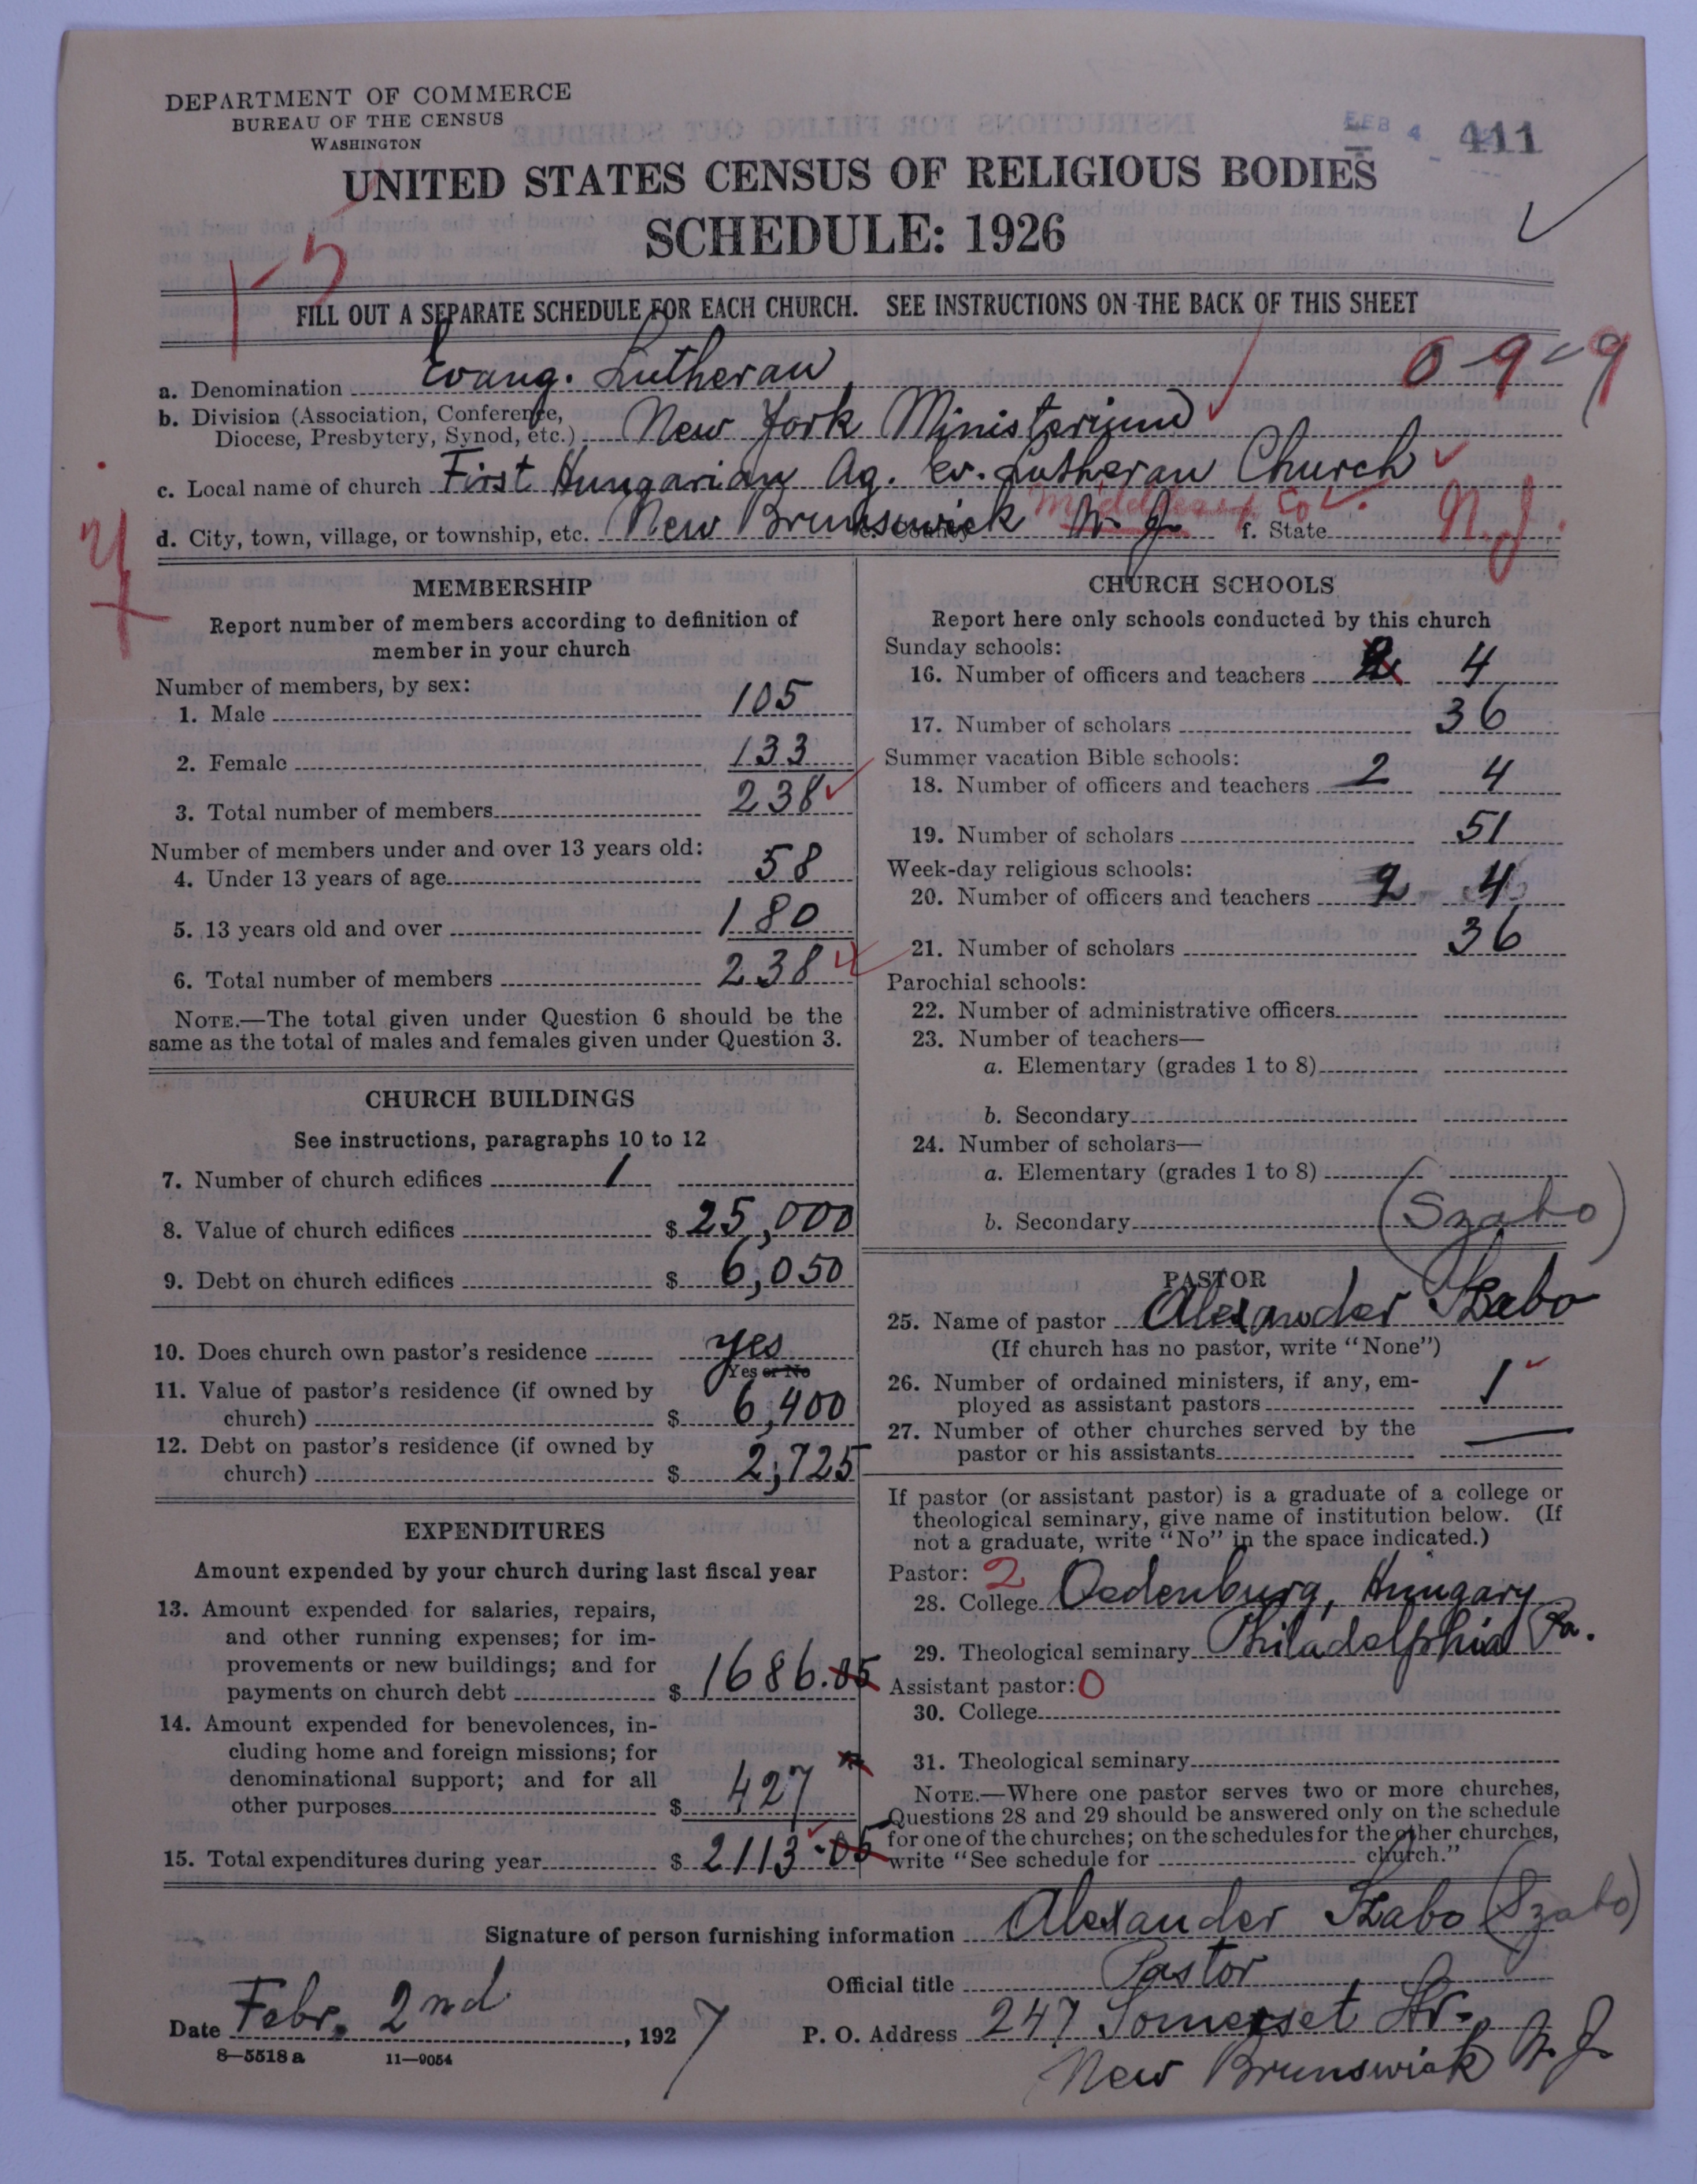 DEPARTMENT OF COMMERCE
BUREAU OF THE CENSUS
WASHINGTON
FEB 4 411
UNITED STATES CENSUS OF RELIGIOUS BODIES
SCHEDULE: 1926
FILL OUT A SEPARATE SCHEDULE FOR EACH CHURCH. SEE INSTRUCTIONS ON THE BACK OF THIS SHEET
a. Denomination Evang. Lutheran 0-9-9
b. Division (Association, Conference,
Diocese, Presbytery, Synod, etc.) New York Ministerium
c. Local name of church First Hungarian Ag. Ev. Lutheran Church
d. City, town, village, or township, etc. New Brunswick e. County N. J. Middlesex Co f. State N.J.
MEMBERSHIP
Report number of members according to definition of
member in your church
Number of members, by sex:
1. Male 105
2. Female 133
3. Total number of members 238
Number of members under and over 13 years old:
4. Under 13 years of age 58
5. 13 years old and over 180
6. Total number of members 238
NOTE.—The total given under Question 6 should be the
same as the total of males and females given under Question 3.
CHURCH BUILDINGS
See instructions, paragraphs 10 to 12
7. Number of church edifices 1
8. Value of church edifices $ 25,000
9. Debt on church edifices $ 6,050
10. Does church own pastor's residence yes
Yes or No
11. Value of pastor's residence (if owned by
church) $ 6,400
12. Debt on pastor's residence (if owned by
church) $ 2,725
EXPENDITURES
Amount expended by your church during last fiscal year
13. Amount expended for salaries, repairs,
and other running expenses; for im-
provements or new buildings; and for
payments on church debt $ 1686.05
14. Amount expended for benevolences, in-
cluding home and foreign missions; for
denominational support; and for all
other purposes $ 427
15. Total expenditures during year $ 2113.05
CHURCH SCHOOLS
Report here only schools conducted by this church
Sunday schools:
16. Number of officers and teachers 2 4
17. Number of scholars 36
Summer vacation Bible schools:
18. Number of officers and teachers 2 4
19. Number of scholars 51
Week-day religious schools:
20. Number of officers and teachers 2 4
21. Number of scholars 36
Parochial schools:
22. Number of administrative officers
23. Number of teachers—
a. Elementary (grades 1 to 8)
b. Secondary
24. Number of scholars—
a. Elementary (grades 1 to 8)
b. Secondary (Szabo)
PASTOR
25. Name of pastor Alexander Szabo
(If church has no pastor, write "None")
26. Number of ordained ministers, if any, em-
ployed as assistant pastors 1
27. Number of other churches served by the
pastor or his assistants
If pastor (or assistant pastor) is a graduate of a college or
theological seminary, give name of institution below. (If
not a graduate, write "No" in the space indicated.)
Pastor: 2
28. College Oedenburg, Hungary
29. Theological seminary Philadelphia Pa.
Assistant pastor: 0
30. College
31. Theological seminary
NOTE.—Where one pastor serves two or more churches,
Questions 28 and 29 should be answered only on the schedule
for one of the churches; on the schedules for the other churches,
write "See schedule for church."
Signature of person furnishing information Alexander Szabo (Szabo)
Official title Pastor
Date Febr. 2nd, 1927 P. O. Address 247 Somerset Str.
New Brunswick N. J.
8—5518 a 11—9054